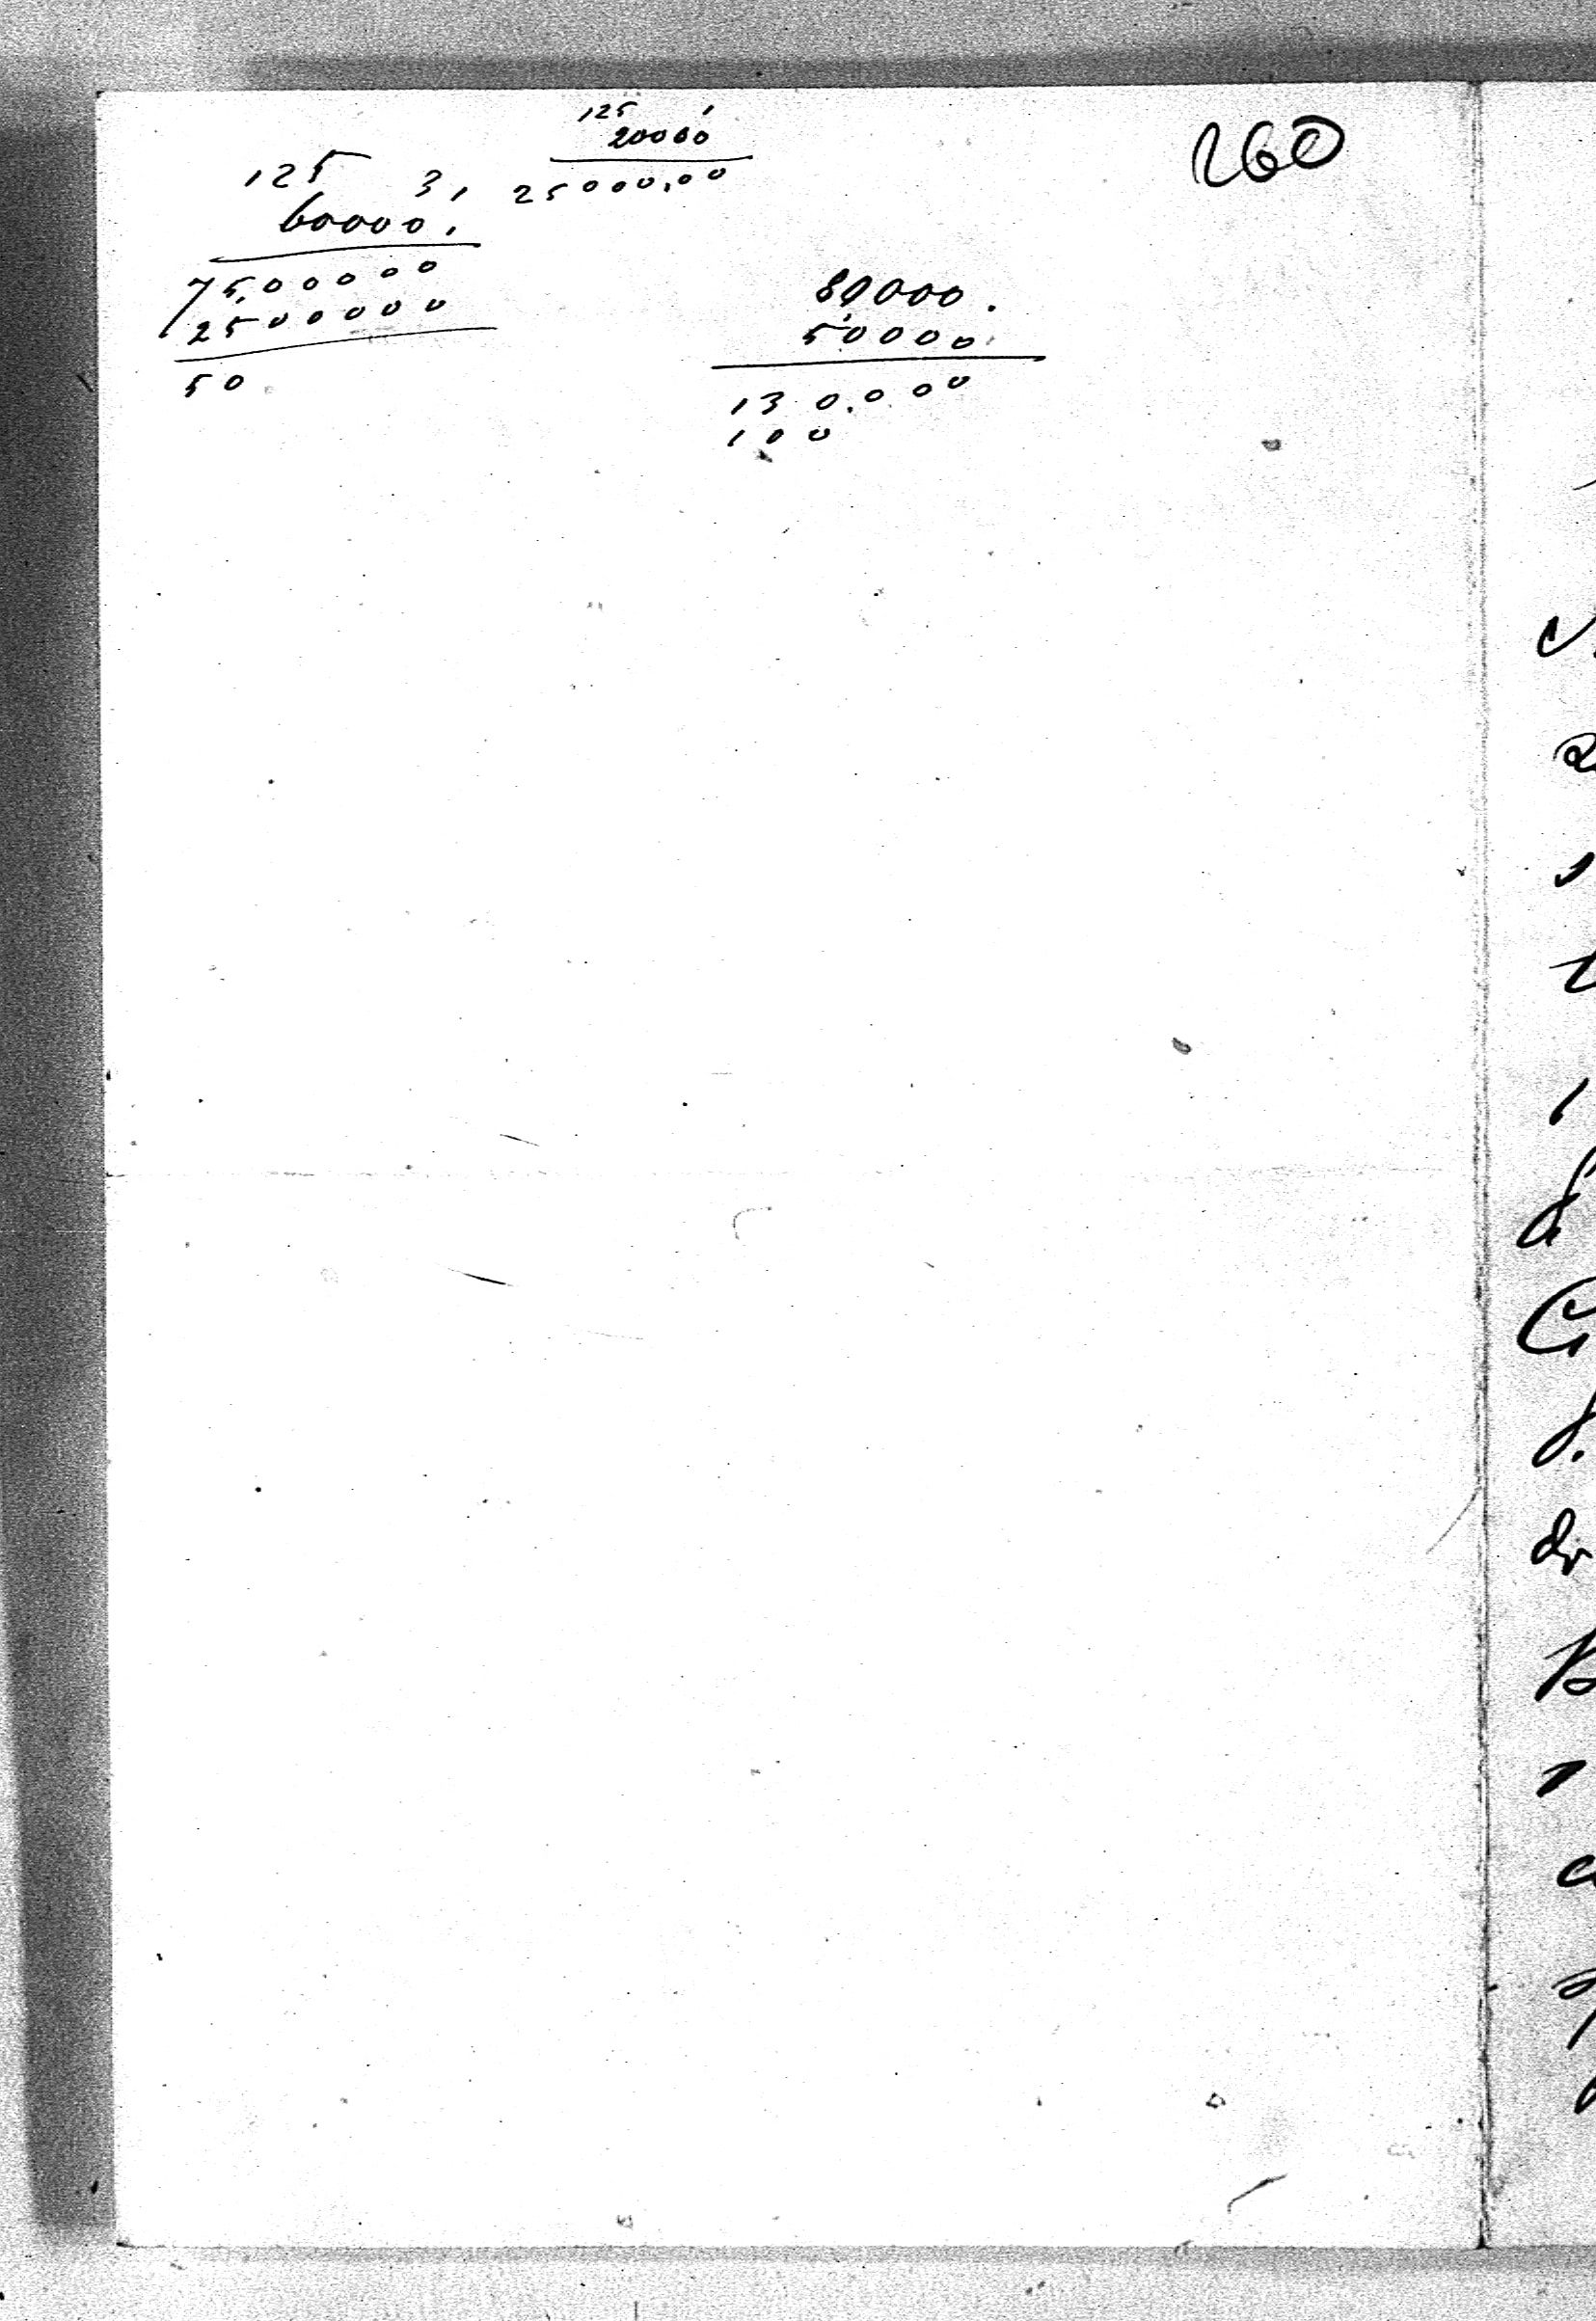 260
125 1
20000
25000.00
125 3,
60000.
7500000
2500000
50
80000.
50000.
130.000
100